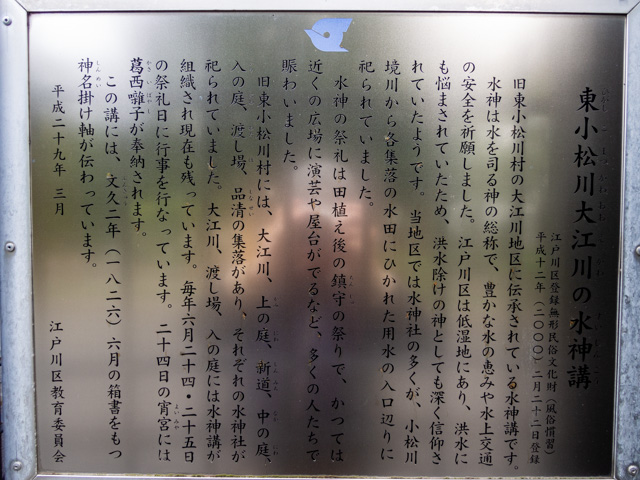 東小松川大江川の水神講
江戸川区登録無形民俗文化財（風俗慣習）
平成十二年（二〇〇〇）二月二十二日登録
旧東小松川村の大江川地区に伝承されている水神講です。
水神は水を司る神の総称で、豊かな水の恵みや水上交通
の安全を祈願しました。江戸川区は低湿地にあり、洪水に
も悩まされていたため、洪水除けの神としても深く信仰さ
れていたようです。当地区では水神社の多くが、小松川
境川から各集落の水田にひかれた用水の入口辺りに
祀られていました。
水神の祭礼は田植え後の鎮守の祭りで、かつては
近くの広場に演芸や屋台がでるなど、多くの人たちで
賑わいました。
旧東小松川村には、大江川、上の庭、新道、中の庭、
入の庭、渡し場、品清の集落があり、それぞれの水神社が
祀られていました。大江川、渡し場、入の庭には水神講が
組織され現在も残っています。毎年六月二十四・二十五日
の祭礼日に行事を行なっています。二十四日の宵宮には
葛西囃子が奉納されます。
この講には、文久二年（一八二六）六月の箱書をもつ
神名掛け軸が伝わっています。
平成二十九年 三月
江戸川区教育委員会